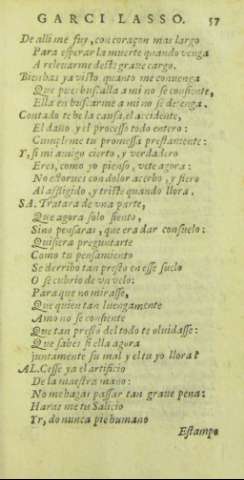 GARCI LASSO. 57
De alli me fuy, con coraçon mas largo
Para esperar la muerte quando venga
A relevarme deste graue cargo.
Bien has ya visto quanto me conuenga
Que pues buscalla a mi no se consiente,
Ella en buscarme a mi no se detenga.
Contado te he la causa, el accidente,
El daño y el processo todo entero:
Cumpleme tu promessa prestamente:
Y, si mi amigo cierto, y verdadero
Eres, como yo pienso, vete agora:
No estorues con dolor acerbo, y fiero
Al afligido, y triste quando llora.
SA. Tratara de vna parte,
Que agora solo siento,
Sino pensaras, que era dar consuelo:
Quisiera preguntarte
Como tu pensamiento
Se derribo tan presto en esse suelo
O se cubrio de vn velo:
Para que no mirasse,
Que quien tan luengamente
Amo no se consiente
Que tan presto del todo te oluidasse:
Que sabes si ella agora
juntamente su mal y el tu yo llora?
AL. Cesse ya el artificio
De la maestra mano:
No me hagas passar tan graue pena:
Haras me tu Salicio
Yr, do nunca pie humano
Estampo